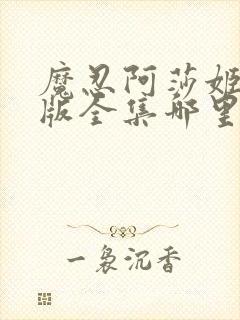 魔忍阿莎姬
版全集哪里
一袅沉香